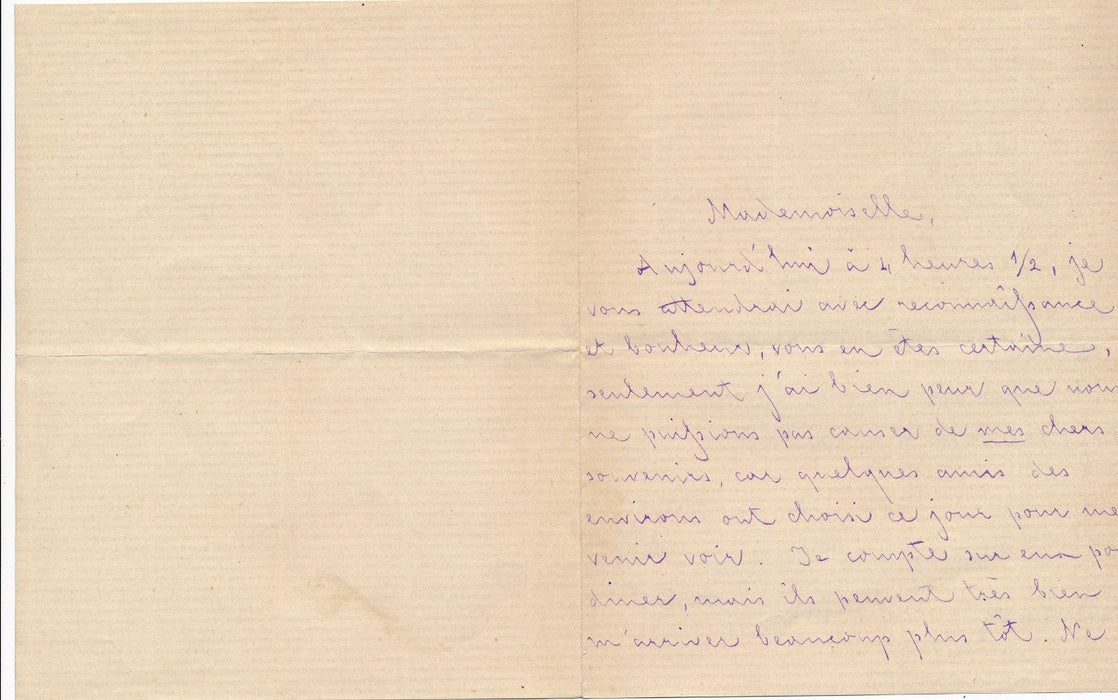 Mademoiselle,
Aujourd'hui à 4 heures 1/2, je
vous attendrai avec reconnaissance
et bonheur, vous en êtes certaine,
seulement j'ai bien peur que nous
ne puissions pas causer de mes chers
souvenirs, car quelques amis des
environs ont choisi ce jour pour me
venir voir. Je compte sur eux
diner, mais ils peuvent très bien
m'arriver beaucoup plus tôt. Ne